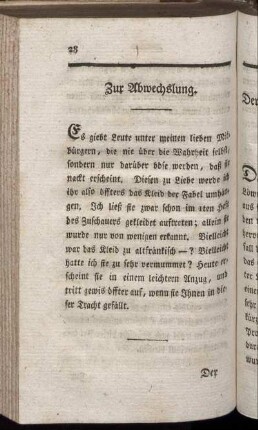 28
Zur Abwechslung.
Es giebt Leute unter meinen lieben Mit-
bürgern, die nie über die Wahrheit selbst,
sondern nur darüber böse werden, daß sie
nackt erscheint. Diesen zu Liebe werde ich
ihr also öffters das Kleid der Fabel umhän-
gen. Ich ließ sie zwar schon im 1ten Heft
des Zuschauers gekleidet auftreten; allein sie
wurde nur von wenigen erkannt. Vielleicht
war das Kleid zu altfränkisch —? Vielleicht
hatte ich sie zu sehr vermummet? Heute er-
scheint sie in einem leichtern Anzug, und
tritt gewis öffter auf, wenn sie Ihnen in die-
ser Tracht gefällt.
Der
Der